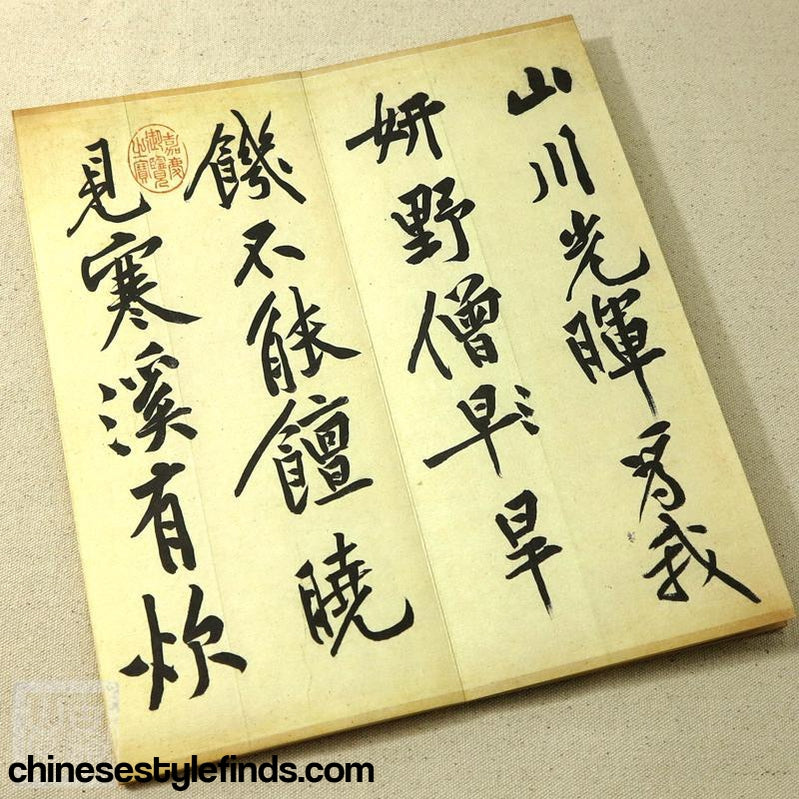 山川光暉爲我
妍野僧早旱
饑不能饘曉
見寒溪有炊
嘉慶御覽之寶
chinesestylefinds.com